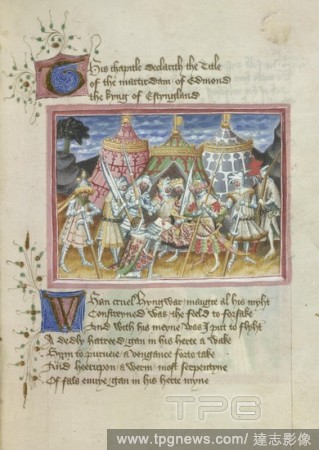 This chapitle declarith the title
of the martirdam of Edmond
the kyng of Estynglond
Whan cruel hyngwar maugre al his myht
Constreyned was the feeld to forsake
And with his meyne was I put to flyht
A dedly hatreed gan in his herte a wake
hym to purueie a vengance forto take
And heerupon a werm most serpentyne
Of fals envye gan in his herte myne
TPG
www.tpgnews.com / 達志影像